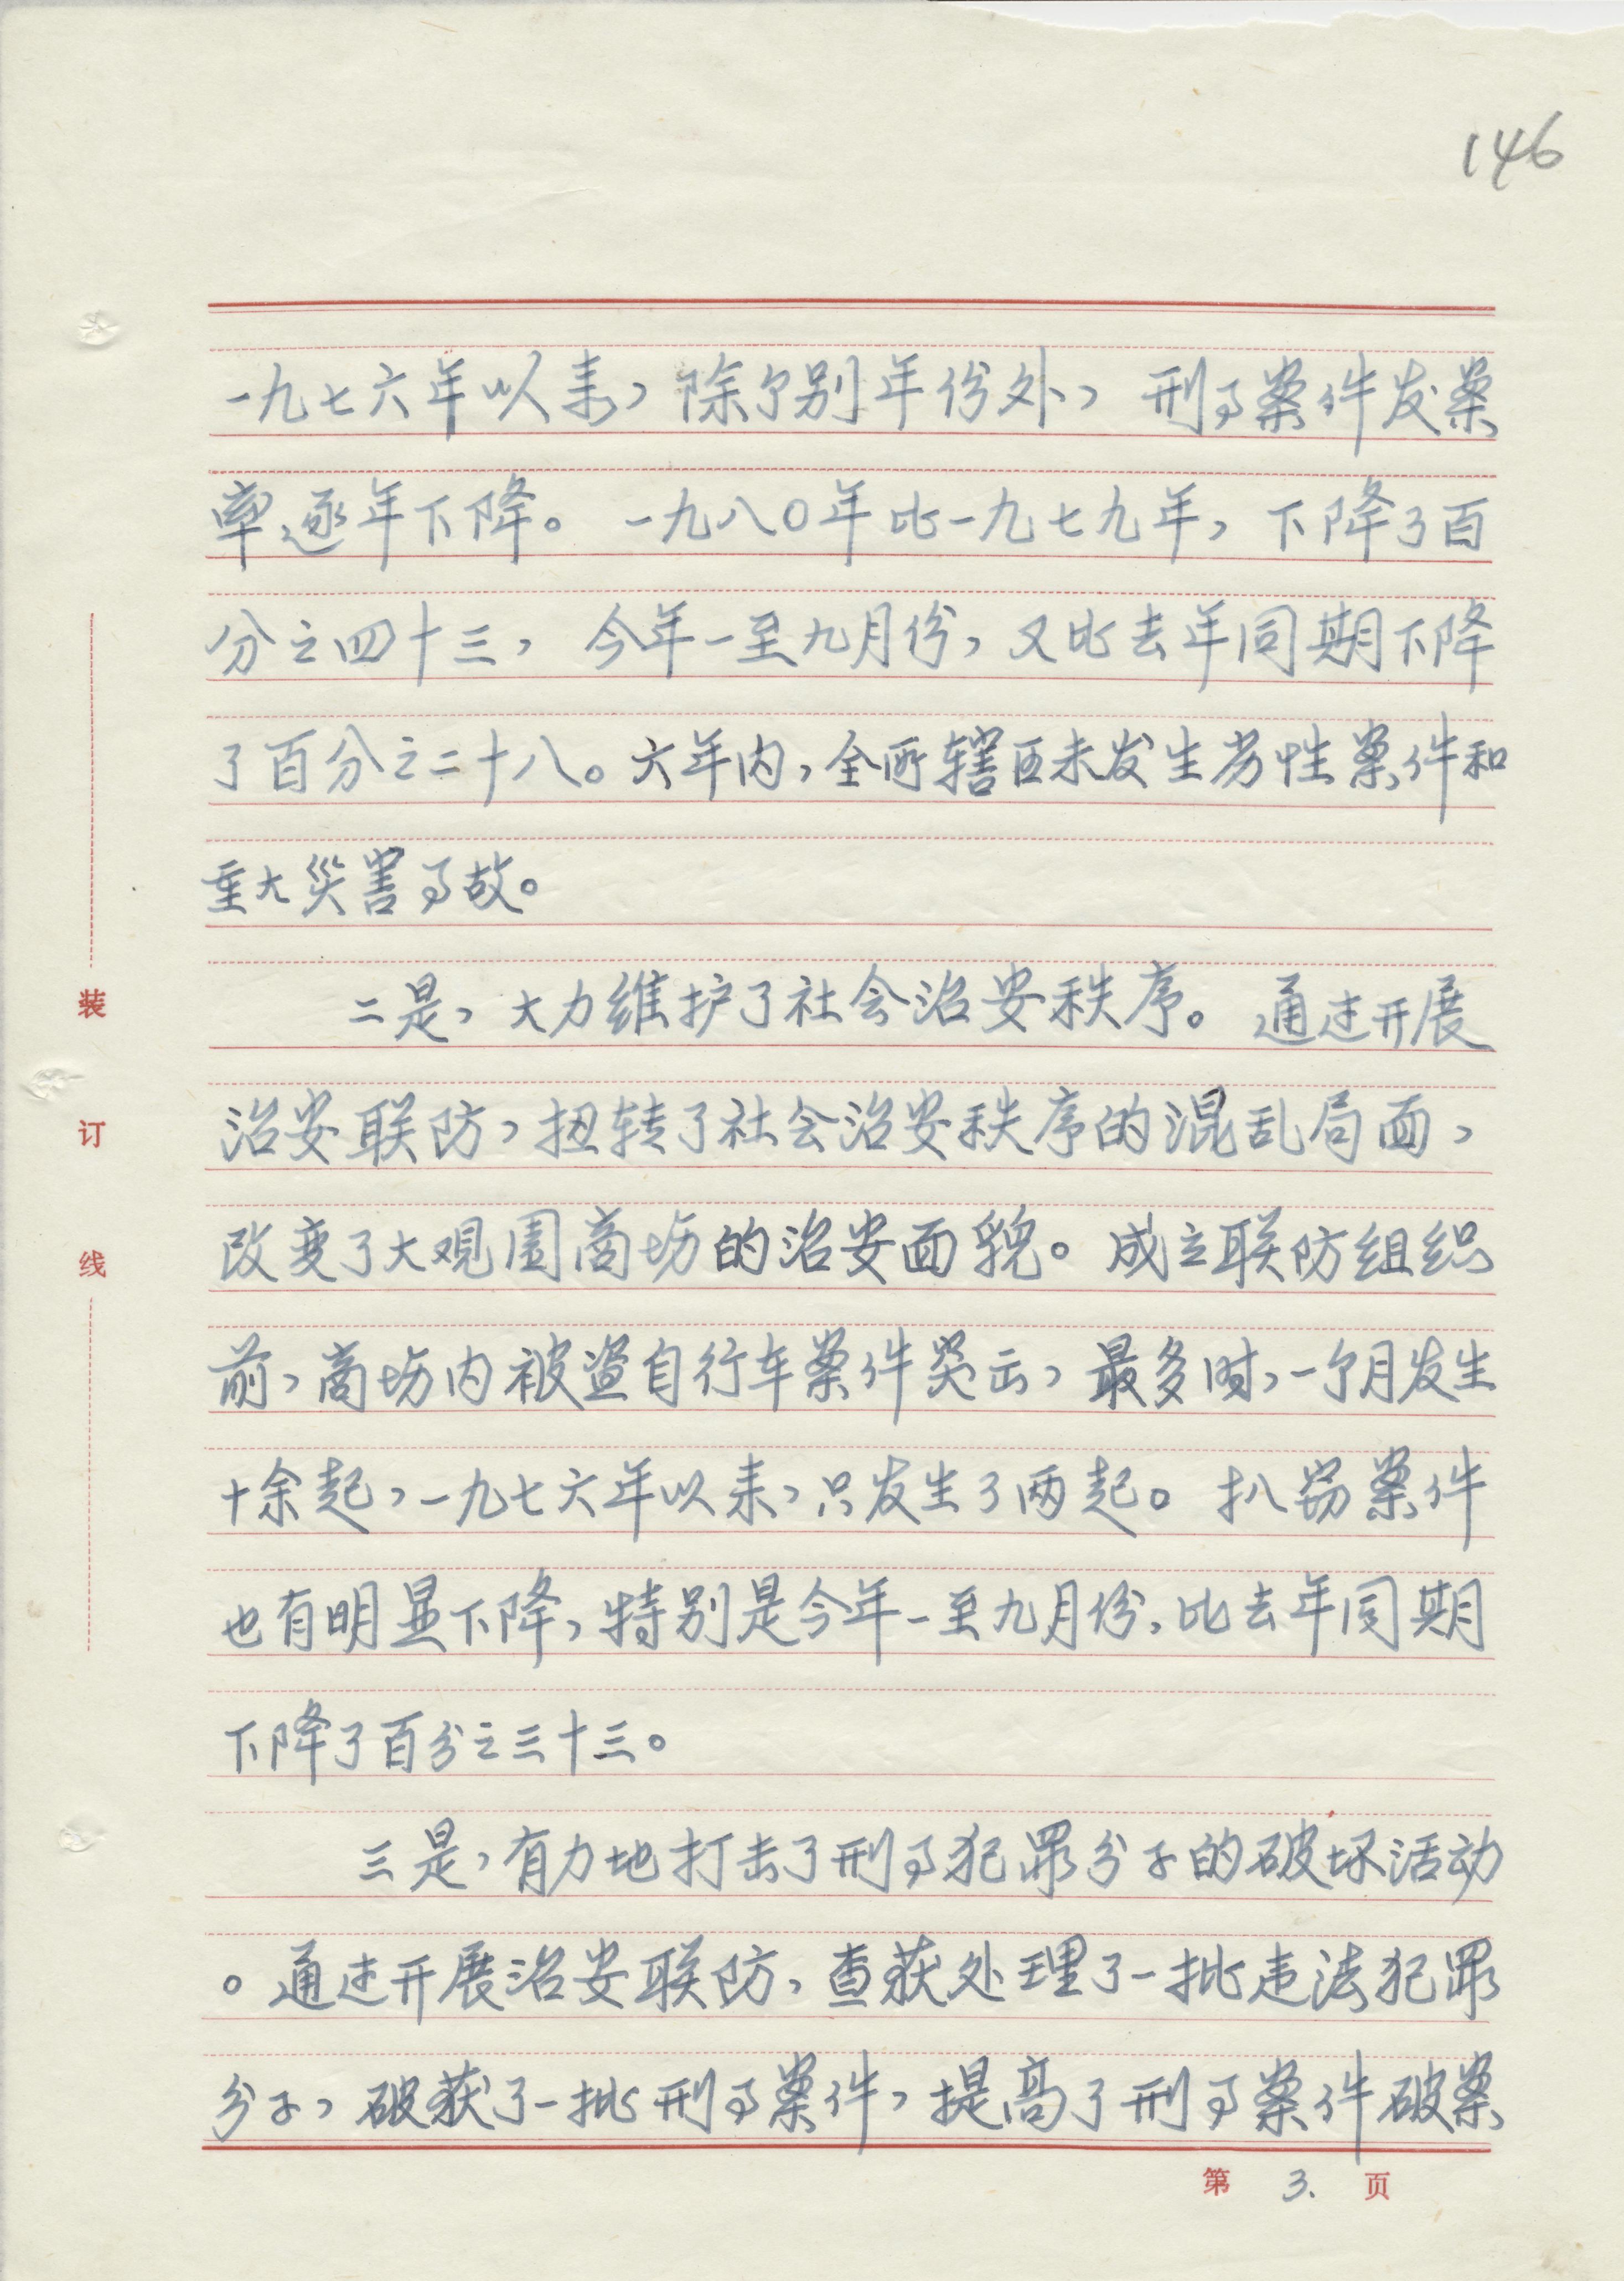 146
一九七六年以来，除个别年份外，刑事案件发案
率逐年下降。一九八〇年比一九七九年，下降了百
分之四十三，今年一至九月份，又比去年同期下降
了百分之二十八。六年内，全所辖区未发生劣性案件和
重大災害事故。
二是，大力维护了社会治安秩序。通过开展
治安联防，扭转了社会治安秩序的混乱局面，
改变了大观园商场的治安面貌。成立联防组织
前，商场内被盗自行车案件突出，最多时，一个月发生
十余起，一九七六年以来，只发生了两起。扒窃案件
也有明显下降，特别是今年一至九月份，比去年同期
下降了百分之三十三。
三是，有力地打击了刑事犯罪分子的破坏活动
。通过开展治安联防，查获处理了一批违法犯罪
分子，破获了一批刑事案件，提高了刑事案件破案
第 3. 页
装
订
线